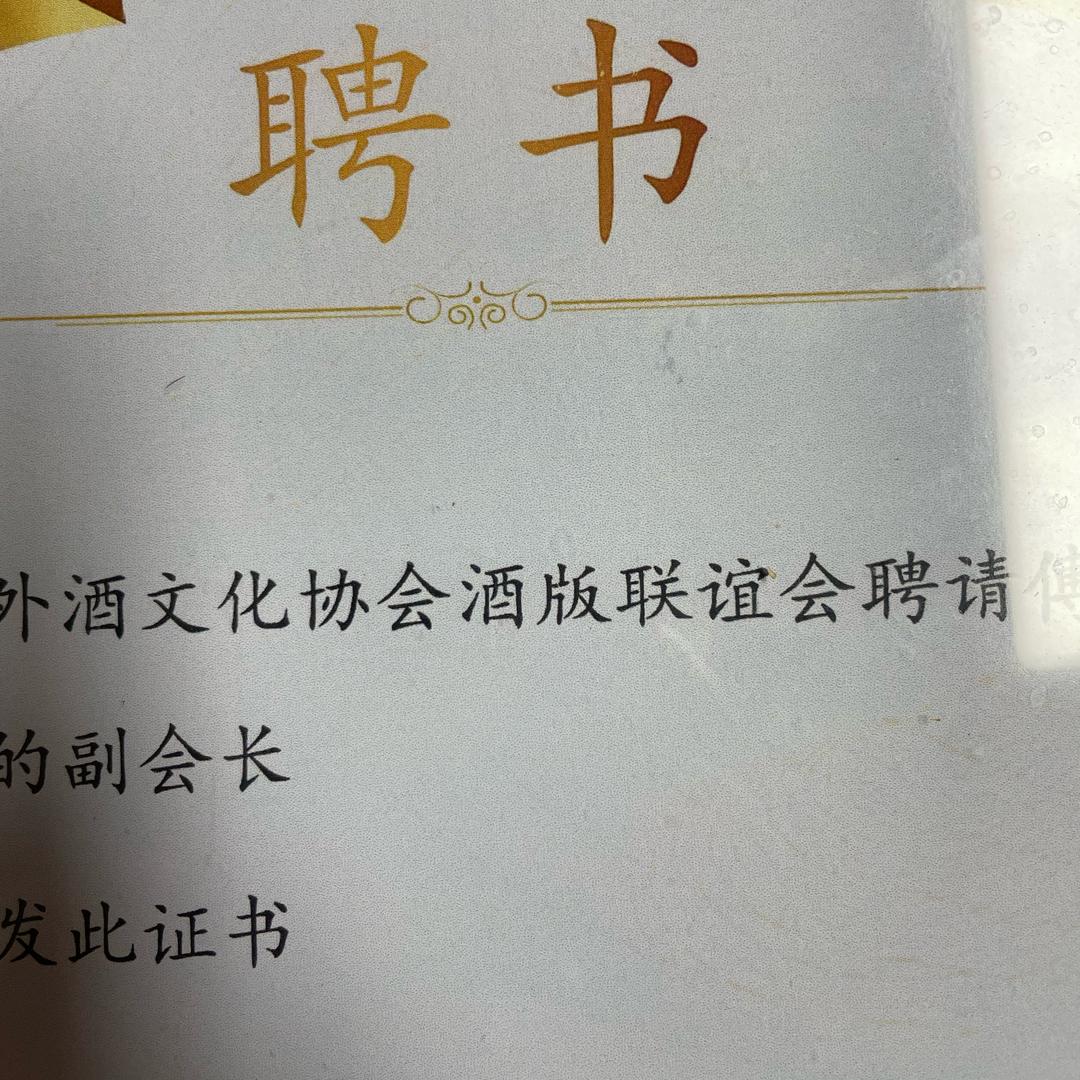 聘书
外酒文化协会酒版联谊会聘请傅
的副会长
发此证书